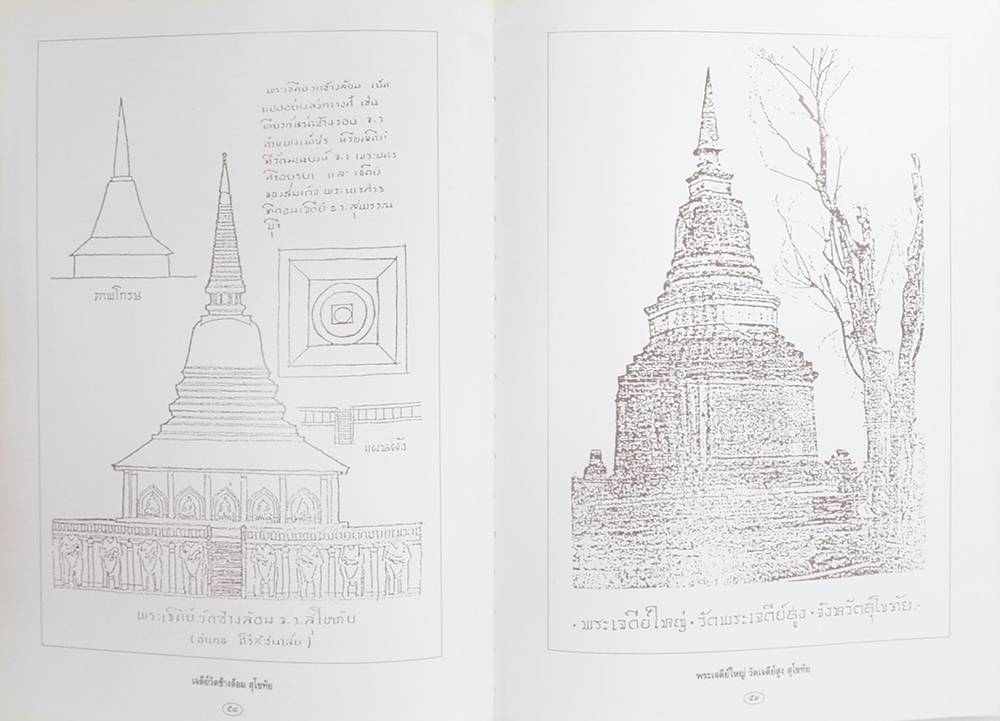 พระเจดีย์วัดช้างล้อม เป็น
แบบอย่างลังกาวงศ์ เช่น
เดียวกับวัดช้างรอบ จ.ว.
กำแพงเพ็ชร
จ.ว. พระนคร
ศรีอยุธยา และ เจดีย์
ของสมเด็จ พระนเรศวร
ที่ดอนเจดีย์ จ.ว. สุพรรณ
บุรี
ภาพโกรน
แผนผัง
พระเจดีย์ วัดช้างล้อม จ.ว. สุโขทัย
(อำเภอ ศรีสัชนาลัย)
เจดีย์วัดช้างล้อม สุโขทัย
๕๘
· พระเจดีย์ใหญ่ · วัดพระเจดีย์สูง · จังหวัดสุโขทัย ·
พระเจดีย์ใหญ่ วัดเจดีย์สูง สุโขทัย
๕๙